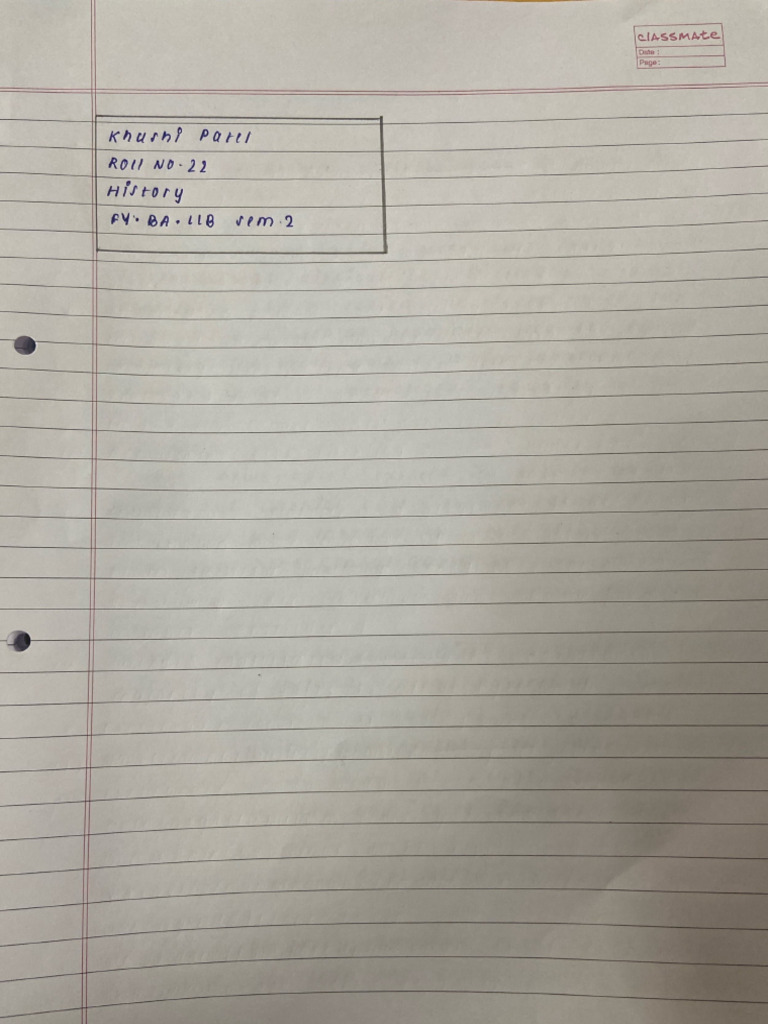 CLASSMATE
Date :
Page :
Khushi Patel
ROll NO-22
HIStory
FY. BA. LLB sem.2